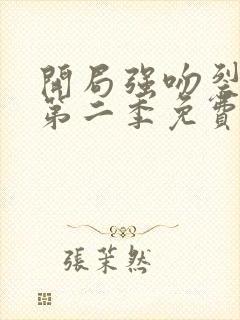 開局強吻裂
第二季免費
張茉然